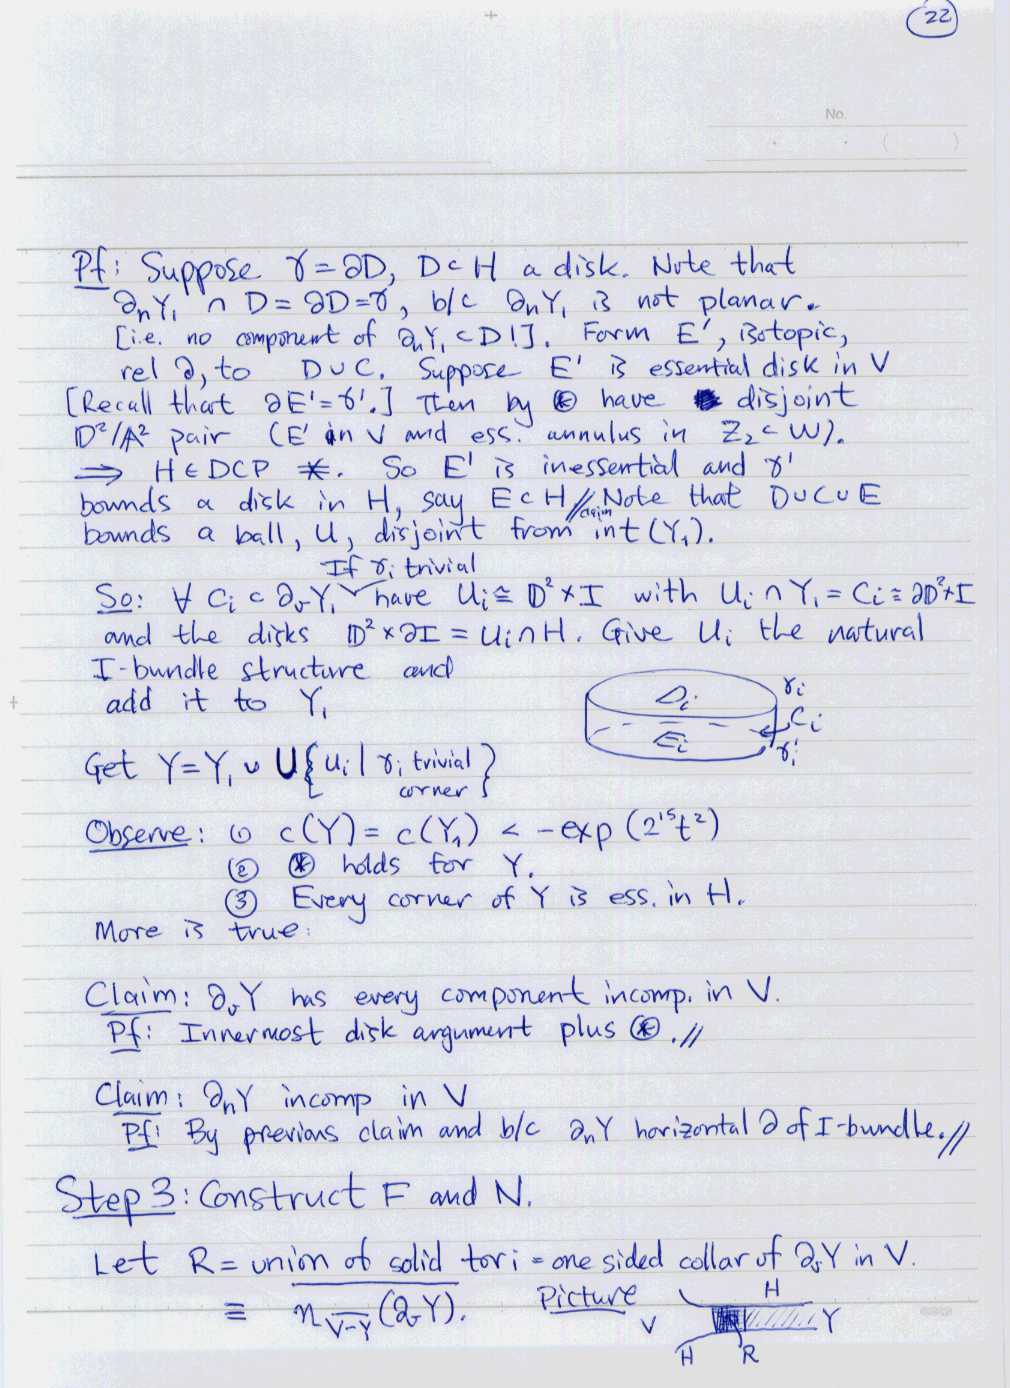 22
No.
Pf: Suppose γ = ∂D, D ⊂ H a disk. Note that
∂hY₁ ∩ D = ∂D = γ, b/c ∂hY₁ is not planar.
[i.e. no component of ∂hY₁ ⊂ D!]. Form E', isotopic,
rel ∂, to D∪C. Suppose E' is essential disk in V
[Recall that ∂E' = γ'.] Then by ⊛ have disjoint
D²/A² pair (E' in V and ess. annulus in Z₂ ⊂ W).
⟹ H ∈ DCP ※. So E' is inessential and γ'
bounds a disk in H, say E ⊂ H // claim Note that D∪C∪E
bounds a ball, U, disjoint from int(Y₁).
If γi trivial
So: ∀ Ci ⊂ ∂vY₁ have Ui ≅ D² × I with Ui ∩ Y₁ = Ci ≅ ∂D² × I
and the disks D² × ∂I = Ui ∩ H. Give Ui the natural
I-bundle structure and
add it to Y₁
Di γi
Ci
Ei γi'
Get Y = Y₁ ∪ ∪{Ui | γi trivial
corner}
Observe: ① c(Y) = c(Y₁) < -exp(2¹⁵t²)
② ⊛ holds for Y.
③ Every corner of Y is ess. in H.
More is true:
Claim: ∂vY has every component incomp. in V.
Pf: Innermost disk argument plus ⊛. //
Claim: ∂hY incomp in V
Pf: By previous claim and b/c ∂hY horizontal ∂ of I-bundle. //
Step 3: Construct F and N.
Let R = union of solid tori = one sided collar of ∂vY in V.
≡ n_{V-Y}(∂vY). Picture
H
V Y
H R